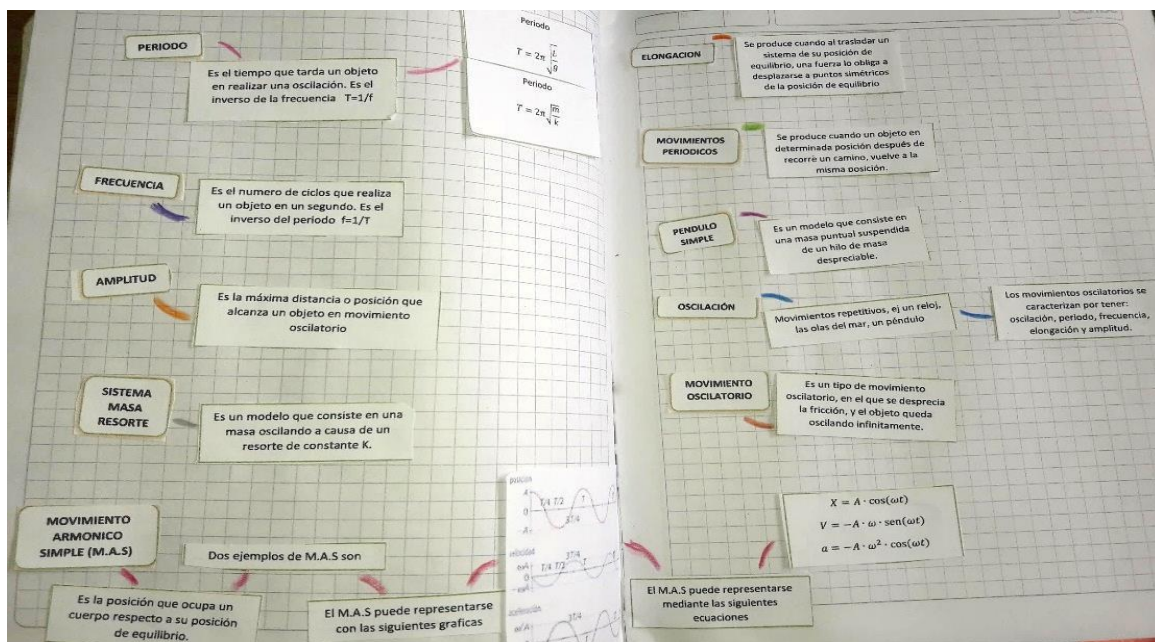 PERIODO
Es el tiempo que tarda un objeto
en realizar una oscilación. Es el
inverso de la frecuencia T=1/f
Periodo
T = 2π √(L/g)
Periodo
T = 2π √(m/k)
FRECUENCIA
Es el numero de ciclos que realiza
un objeto en un segundo. Es el
inverso del periodo f=1/T
AMPLITUD
Es la máxima distancia o posición que
alcanza un objeto en movimiento
oscilatorio
SISTEMA
MASA
RESORTE
Es un modelo que consiste en una
masa oscilando a causa de un
resorte de constante K.
MOVIMIENTO
ARMONICO
SIMPLE (M.A.S)
Es la posición que ocupa un
cuerpo respecto a su posición
de equilibrio.
Dos ejemplos de M.A.S son
El M.A.S puede representarse
con las siguientes graficas
posición
A
0
-A
T/4 T/2
3T/4
T
velocidad
ωA
0
-ωA
T/4 T/2
3T/4
T
aceleración
3T/4
ELONGACION
Se produce cuando al trasladar un
sistema de su posición de
equilibrio, una fuerza lo obliga a
desplazarse a puntos simétricos
de la posición de equilibrio
MOVIMIENTOS
PERIODICOS
Se produce cuando un objeto en
determinada posición después de
recorre un camino, vuelve a la
misma posición.
PENDULO
SIMPLE
Es un modelo que consiste en
una masa puntual suspendida
de un hilo de masa
despreciable.
OSCILACIÓN
Movimientos repetitivos, ej un reloj,
las olas del mar, un péndulo
Los movimientos oscilatorios se
caracterizan por tener:
oscilación, periodo, frecuencia,
elongación y amplitud.
MOVIMIENTO
OSCILATORIO
Es un tipo de movimiento
oscilatorio, en el que se desprecia
la fricción, y el objeto queda
oscilando infinitamente.
El M.A.S puede representarse
mediante las siguientes
ecuaciones
X = A · cos(ωt)
V = −A · ω · sen(ωt)
a = −A · ω² · cos(ωt)